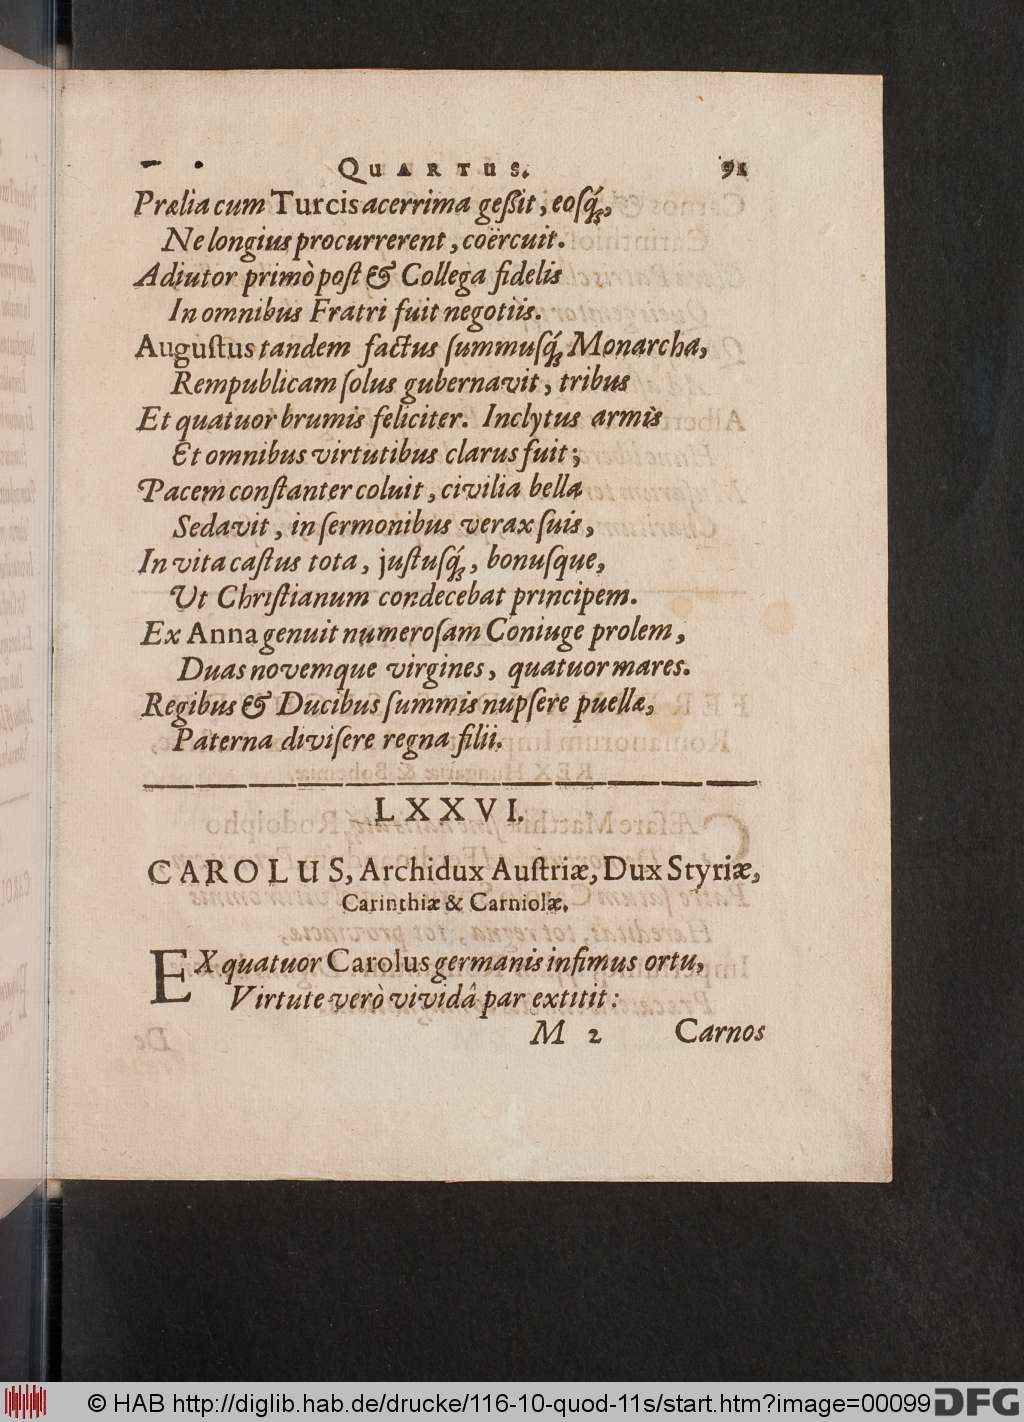 QUARTUS. 91
Prælia cum Turcis acerrima geſsit, eoſq́;,
Ne longius procurrerent, coërcuit.
Adiutor primò poſt & Collega fidelis
In omnibus Fratri fuit negotiis.
Auguſtus tandem factus ſummuſq́; Monarcha,
Rempublicam ſolus gubernavit, tribus
Et quatuor brumis feliciter. Inclytus armis
Et omnibus virtutibus clarus fuit;
Pacem conſtanter coluit, civilia bella
Sedavit, in ſermonibus verax ſuis,
In vita caſtus tota, juſtuſq́;, bonuſque,
Ut Chriſtianum condecebat principem.
Ex Anna genuit numeroſam Coniuge prolem,
Duas novemque virgines, quatuor mares.
Regibus & Ducibus ſummis nupſere puellæ,
Paterna diviſere regna filii.
LXXVI.
CAROLUS, Archidux Auſtriæ, Dux Styriæ,
Carinthiæ & Carniolæ.
EX quatuor Carolus germanis infimus ortu,
Virtute verò vividâ par extitit:
M 2 Carnos
© HAB http://diglib.hab.de/drucke/116-10-quod-11s/start.htm?image=00099 DFG